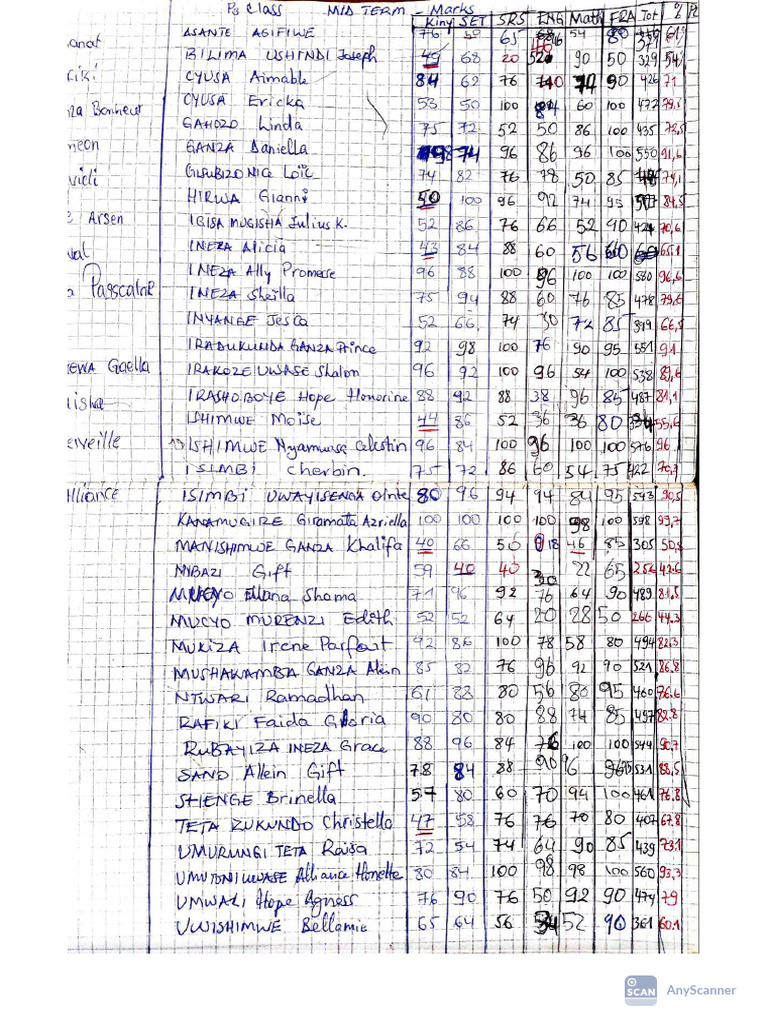 P5 Class MID TERM - Marks
Kiny SET SRS ENG Math FRA Tot %
ASANTE AGIFIWE 76 65 54 80 61
anat BILIMA USHINDI Joseph 45 68 20 52 90 50 329 54
CYUSA Aimable 84 62 76 74 90 426 71
za Bonheur CYUSA Ericka 53 50 100 84 60 100
GAHOZO Linda 75 72 52 50 86 100 435 72,5
GANZA Daniella 98 74 96 86 96 100 550 91,6
GISUBIZO NICA Loïc 74 82 76 78 50 85 74,1
HIRWA Gianni 50 100 96 92 74 95 507 84,5
Arsen IGISA MUGISHA Julius K. 52 86 76 66 52 90 70,6
INEZA Alicia 43 84 88 60 56 60 65.1
INEZA Ally Promese 96 88 100 96 100 100 580 96,6
INEZA Sheilla 75 94 88 60 76 85 478 79,6
INYANGE Jesca 52 66 74 50 72 85 399 66,5
IRADUKUNDA GANZA Prince 92 98 100 76 90 95 551 91
EWA Gaella IRAKOZE UWASE Shalon 96 92 100 96 54 100 538 89,6
lisha IRASHOBOYE Hope Honorine 88 92 88 38 96 85 487 81,1
ISHIMWE Moise 44 86 52 36 36 80 334 55,6
erveille ISHIMWE Nyamurasa Celestin 96 84 100 96 100 100 576 96
ISIMBI Cherbin. 75 72 86 60 54 75 422 70,3
lliance ISIMBI UWAYISENGA 80 96 94 94 84 95 543 90,5
KANAMUGIRE Giramata Azriella 100 100 100 100 98 100 598 99,7
MANISHIMWE GANZA Khalifa 40 66 50 18 46 85 305 50,8
MBAZI Gift 59 40 40 30 22 65 256 42.6
Ellana Shama 71 96 92 76 64 90 489 81,5
MUCYO MURENZI Edith 52 52 64 20 28 50 266 44.3
MUKIZA Irene Parfait 92 86 100 78 58 80 494 82.3
MUSHAKAMBA GANZA Alein 85 82 76 96 92 90 521 86.8
NTWARI Ramadhan 61 88 80 56 80 95 460 76.6
RAFIKI Faida Gloria 90 80 80 88 74 85 497 82.8
RUBAYIZA INEZA Grace 88 96 84 76 100 100 544 90,7
SANO Allein Gift 78 84 88 90 96 95 531 88,5
SHENGE Brinella 57 80 60 70 94 100 461 76.8
TETA ZUKUNDO Christella 47 58 76 76 70 80 407 67.8
UMURUNGI TETA Raisa 72 54 74 64 90 85 439 73.1
UMUTONI UWASE Alliance Honette 80 84 100 98 98 100 560 93.3
UMWALI Hope Agness 76 90 76 50 92 90 474 79
UWISHIMWE Bellamie 65 64 56 34 52 90 361 60.1
SCAN AnyScanner